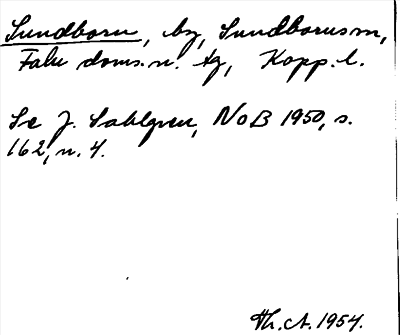 Sundborn, by, Sundborns sn,
Falu doms.n. tg, Kopp. l.
Se J. Sahlgren, NoB 1950, s.
162, n. 4.
Th. A. 1954.